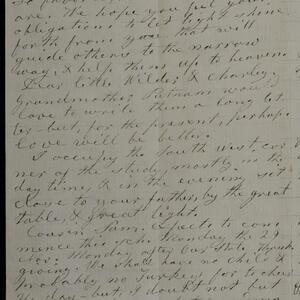 are. We hope you feel your
obligations to let light shine
forth from you that will
guide others to the narrow
way, & help them up to heaven.
Dear little Wilder & Charley,
Grandmother Putnam would
love to write them a long let
ter - but, for the present, perhaps
love will be better.
I occupy the South west cor
ner of the study, mostly in the
day time, & in the evening set
close to your father, by the great
table, & great light.
Cousin Sam. expects to com
mence his Monday the 29
Monday after our State Thanks
giving. We shall have no child &
Probably no Turkey for to cheer
the day - but I doubt not but